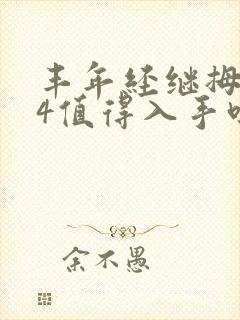 丰年经继拇
4值得入手吗
余不愚